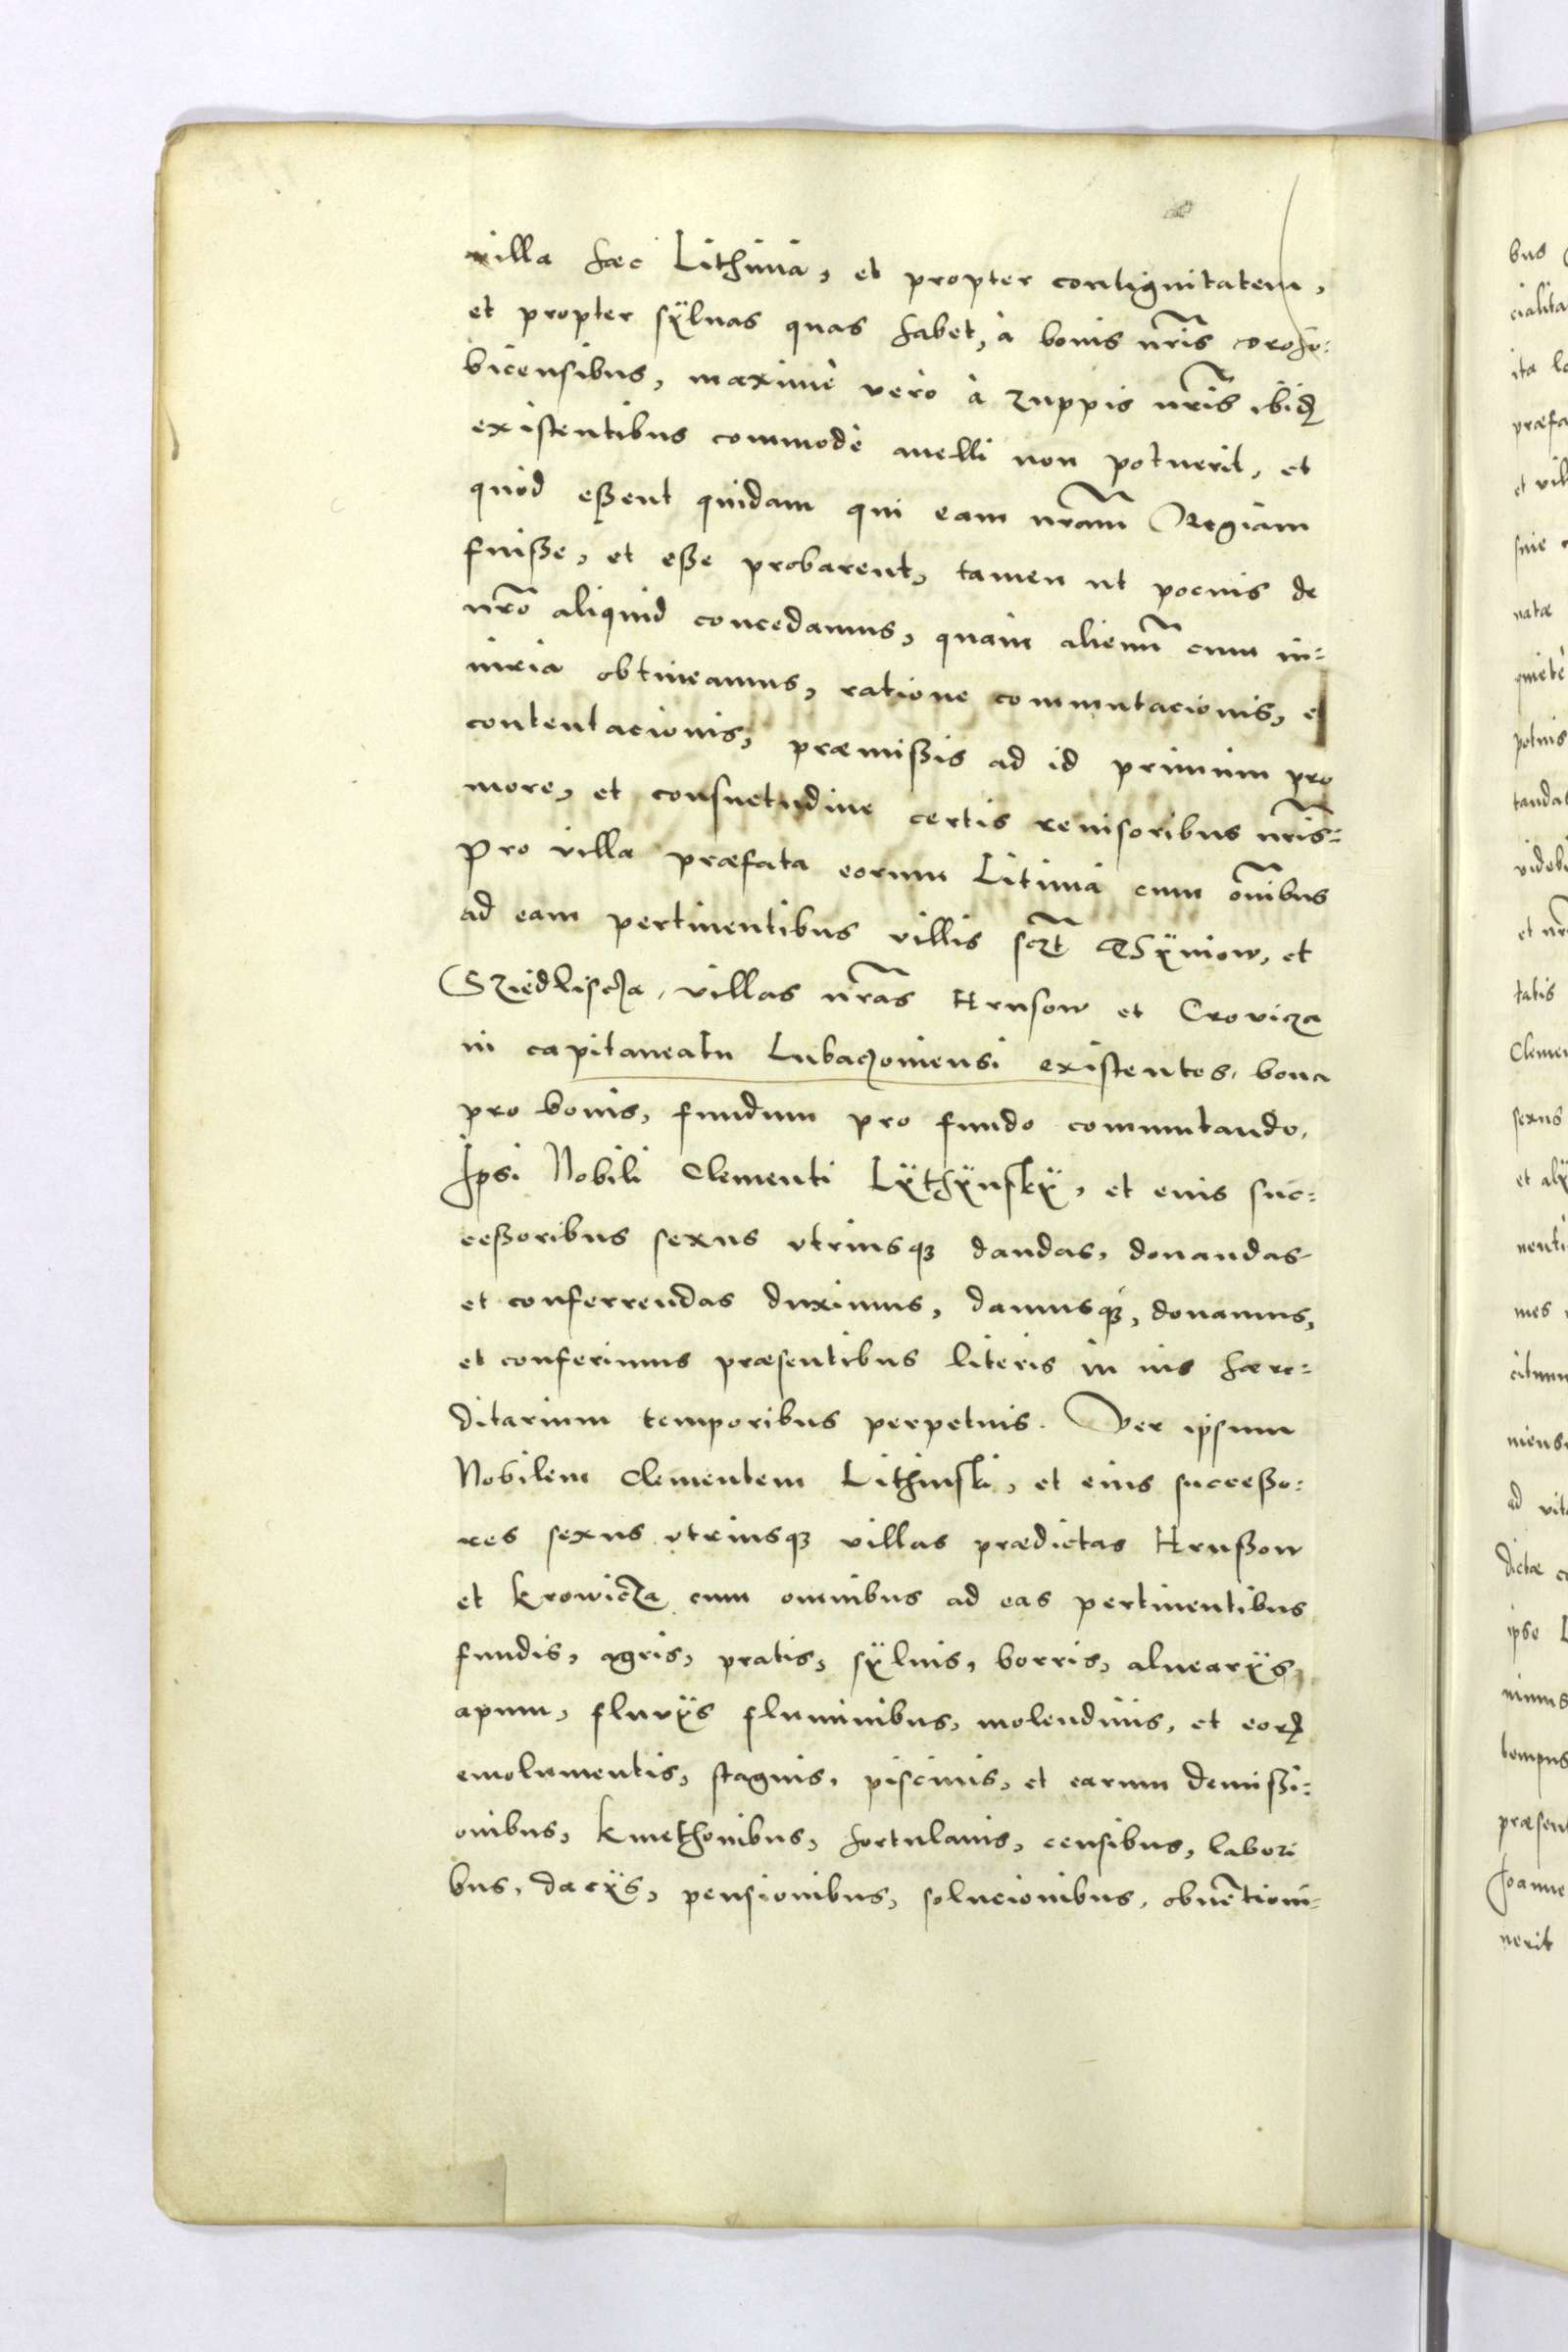 villa hæc Lithinia, et propter contiguitatem,
et propter sÿluas quas habet, à bonis nr̃is Droho:
bicensibus, maximè verò à zuppis nr̃is ibidẽ
existentibus commodè auelli non potuerit, et
quòd eßent quidam qui eam nr̃am Regiam
fuiße, et eße probarent, tamen ut pocius de
nr̃o aliquid concedamus, quàm alienũ cum in:
iuria obtineamus, ratione commutacionis, et
contentacionis, præmißis ad id primùm pro
more, et consuetudine certis reuisoribus nr̃is:
Pro villa præfata eorum Litinia cum om̃ibus
ad eam pertinentibus villis scz̃t et
Sziedliscza, villas nr̃as Hrusow et Crovicza
in capitaneatu Lubaczouiensi existentes, bona
pro bonis, fundum pro fundo commutando,
Ipsi Nobili Clementi Lÿthÿnskÿ, et eius suc:
ceßoribus sexus vtriusq3 dandas, donandas
et conferrendas duximus, damusq3, donamus,
et conferimus præsentibus literis in ius hære:
ditarium temporibus perpetuis. Per ipsum
Nobilem Clementem Lithinski, et eius succeßo:
res sexus vtriusq3 villas prædictas Hrußow
et Krowicza cum omnibus ad eas pertinentibus
fundis, agris, pratis, sÿluis, borris, aluearÿs
apum, fluvÿs fluminibus, molendinis, et eorꝝ
emolumentis, stagnis, piscinis, et earum demißi:
onibus, Kmethonibus, hortulanis, censibus, labori
bus, dacÿs, pensionibus, solucionibus, obuẽtioni:
bus
cialita
ita
præfa
et vil
siue
natæ
quietè
potuis
tandas
videbi
et nr̃
tatis
Clemen
sexus
et alÿ
nenti
mes
citum
niens
ad vit
dictæ
ipso
nimus
tempus
præsen
Joanne
uerit